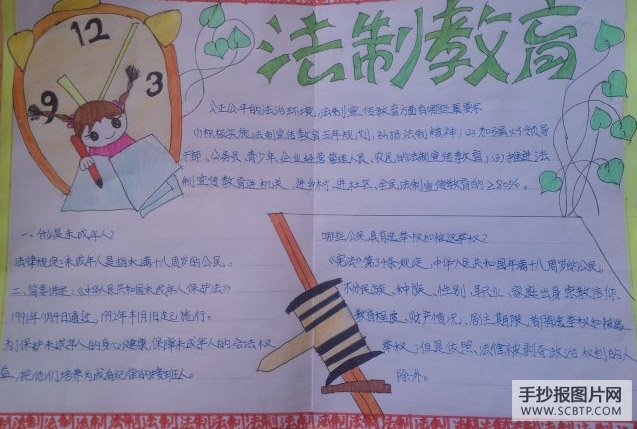 法制教育
12
3
9
公正公平的法治环境,法制宣传教育方面有哪些要求
(1)积极实施法制宣传教育五年规划,弘扬法制精神;(2)加强对领导
干部、公务员、青少年、企业经营管理人员、农民的法制宣传教育;(3)推进法
制宣传教育进机关、进乡村、进社区、全民法制宣传教育的≥80%。
一、什么是未成年人?
法律规定:未成年人是指未满十八周岁的公民。
二、简要讲述:《中华人民共和国未成年人保护法》
1991年9月4日通过,1992年1月1日起施行。
为了保护未成年人的身心健康,保障未成年人的合法权
益,把他们培养为成有纪律的接班人。
哪些公民具有选举权和被选举权?
《宪法》第34条规定,中华人民共和国年满十八周岁的公民,
不分民族、种族、性别、职业、家庭出身宗教信仰、
教育程度、财产情况、居住期限、都有选举权和被选
举权,但是依照法律被剥夺政治权利的人
除外。
法制 法制 法制 法制 法制 法制 法制 法制 法制 法制
手抄报图片网
WWW.SCBTP.COM